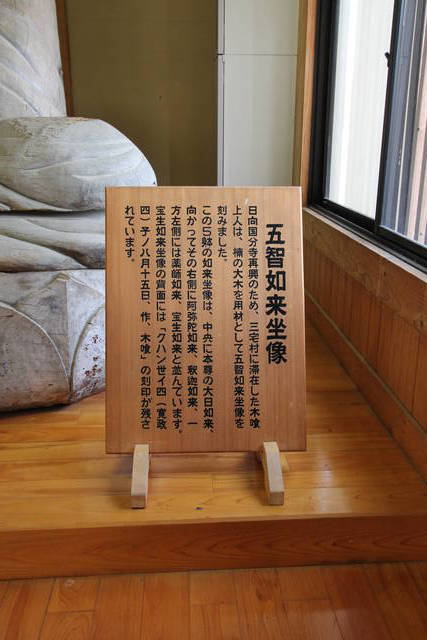 五智如来坐像
日向国分寺再興のため、三宅村に滞在した木喰
上人は、楠の大木を用材として五智如来坐像を
刻みました。
この5躰の如来坐像は、中央に本尊の大日如来、
向かってその右側に阿弥陀如来、釈迦如来、一
方左側には薬師如来、宝生如来と並んでいます。
宝生如来坐像の背面には「クハン世イ四（寛政
四）子ノ八月十五日、作、木喰」の刻印が残さ
れています。